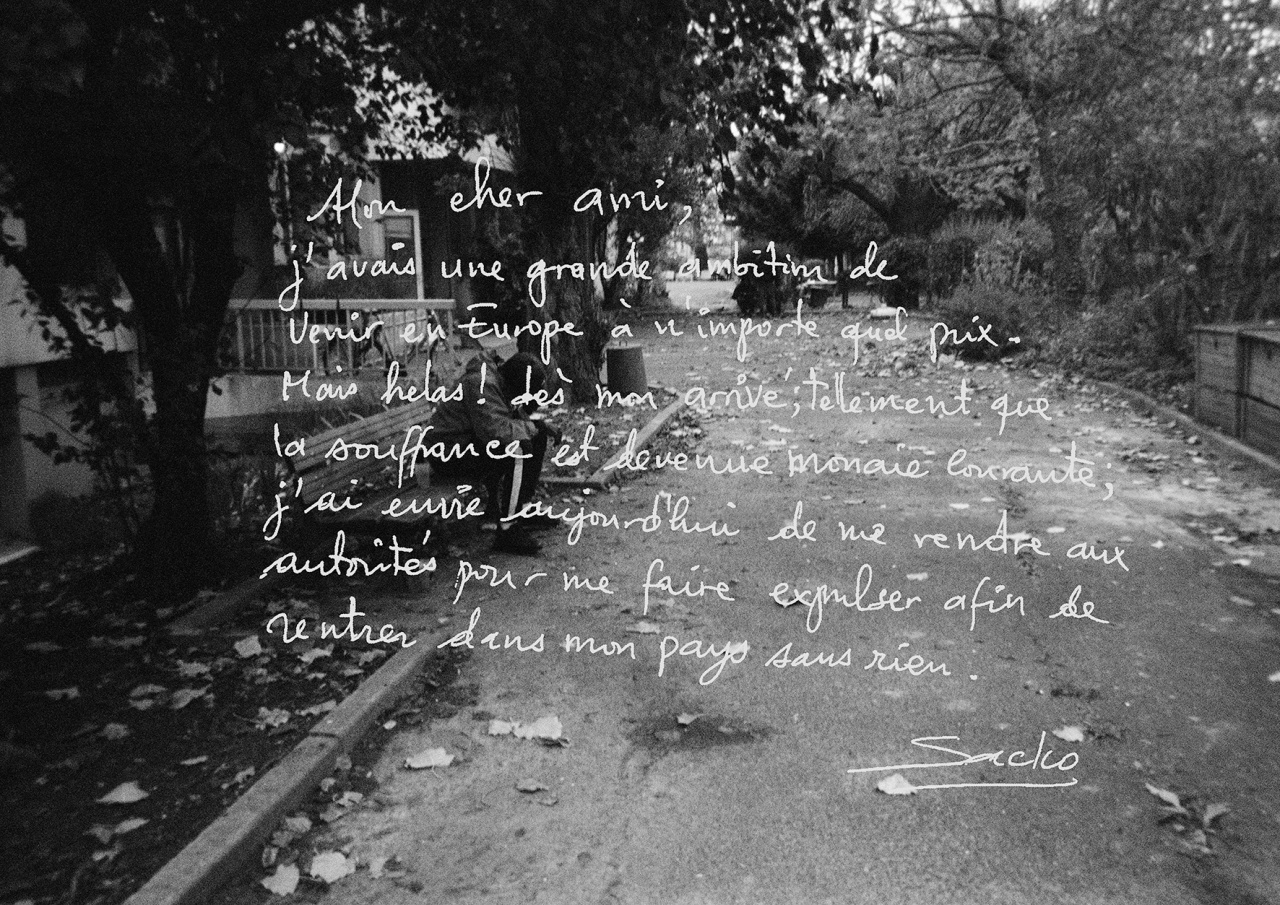 Mon cher ami,
j'avais une grande ambition de
Venir en Europe à n'importe quel prix.
Mais helas! dès mon arrivé; tellement que
la souffrance est devenue monaie courante;
j'ai envie aujourd'hui de me rendre aux
autorités pour me faire expulser afin de
rentrer dans mon pays sans rien.
Sacko